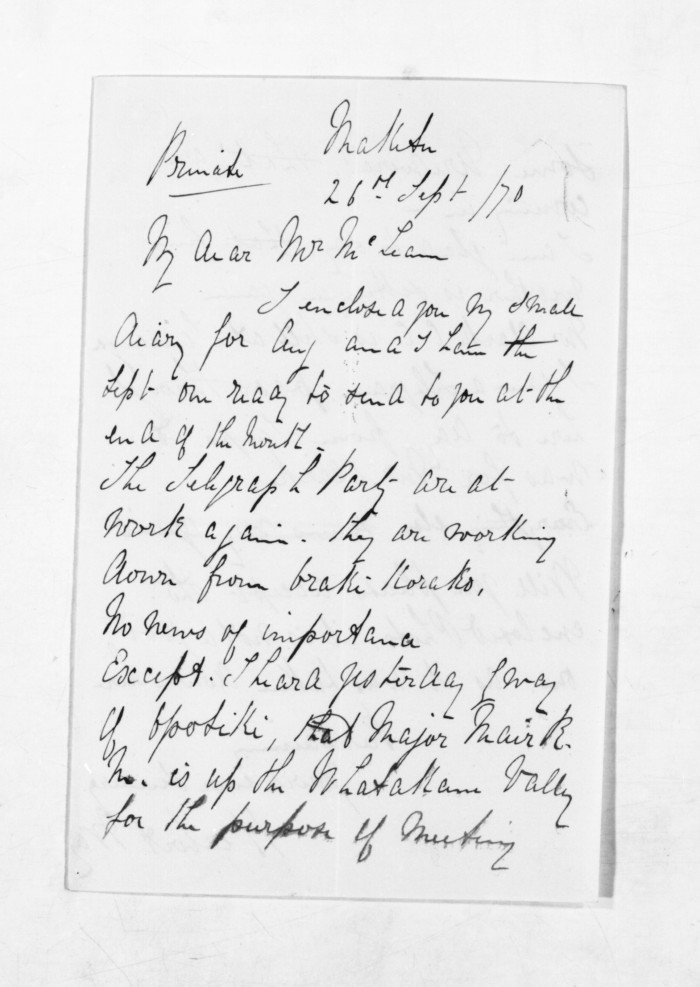 Maketu
Private
26th Sept /70
My dear Mr McLean
I enclosed you my small
diary for Aug and I have the
Sept one ready to send to you at the
end of the Month.
The Telegraph Party are at
work again. they are working
down from Korako.
No news of importance
Except. I heard yesterday by way
of Opotiki, that Major Mair R.
M. is up the Whakatane Valley
for the purpose of Meeting